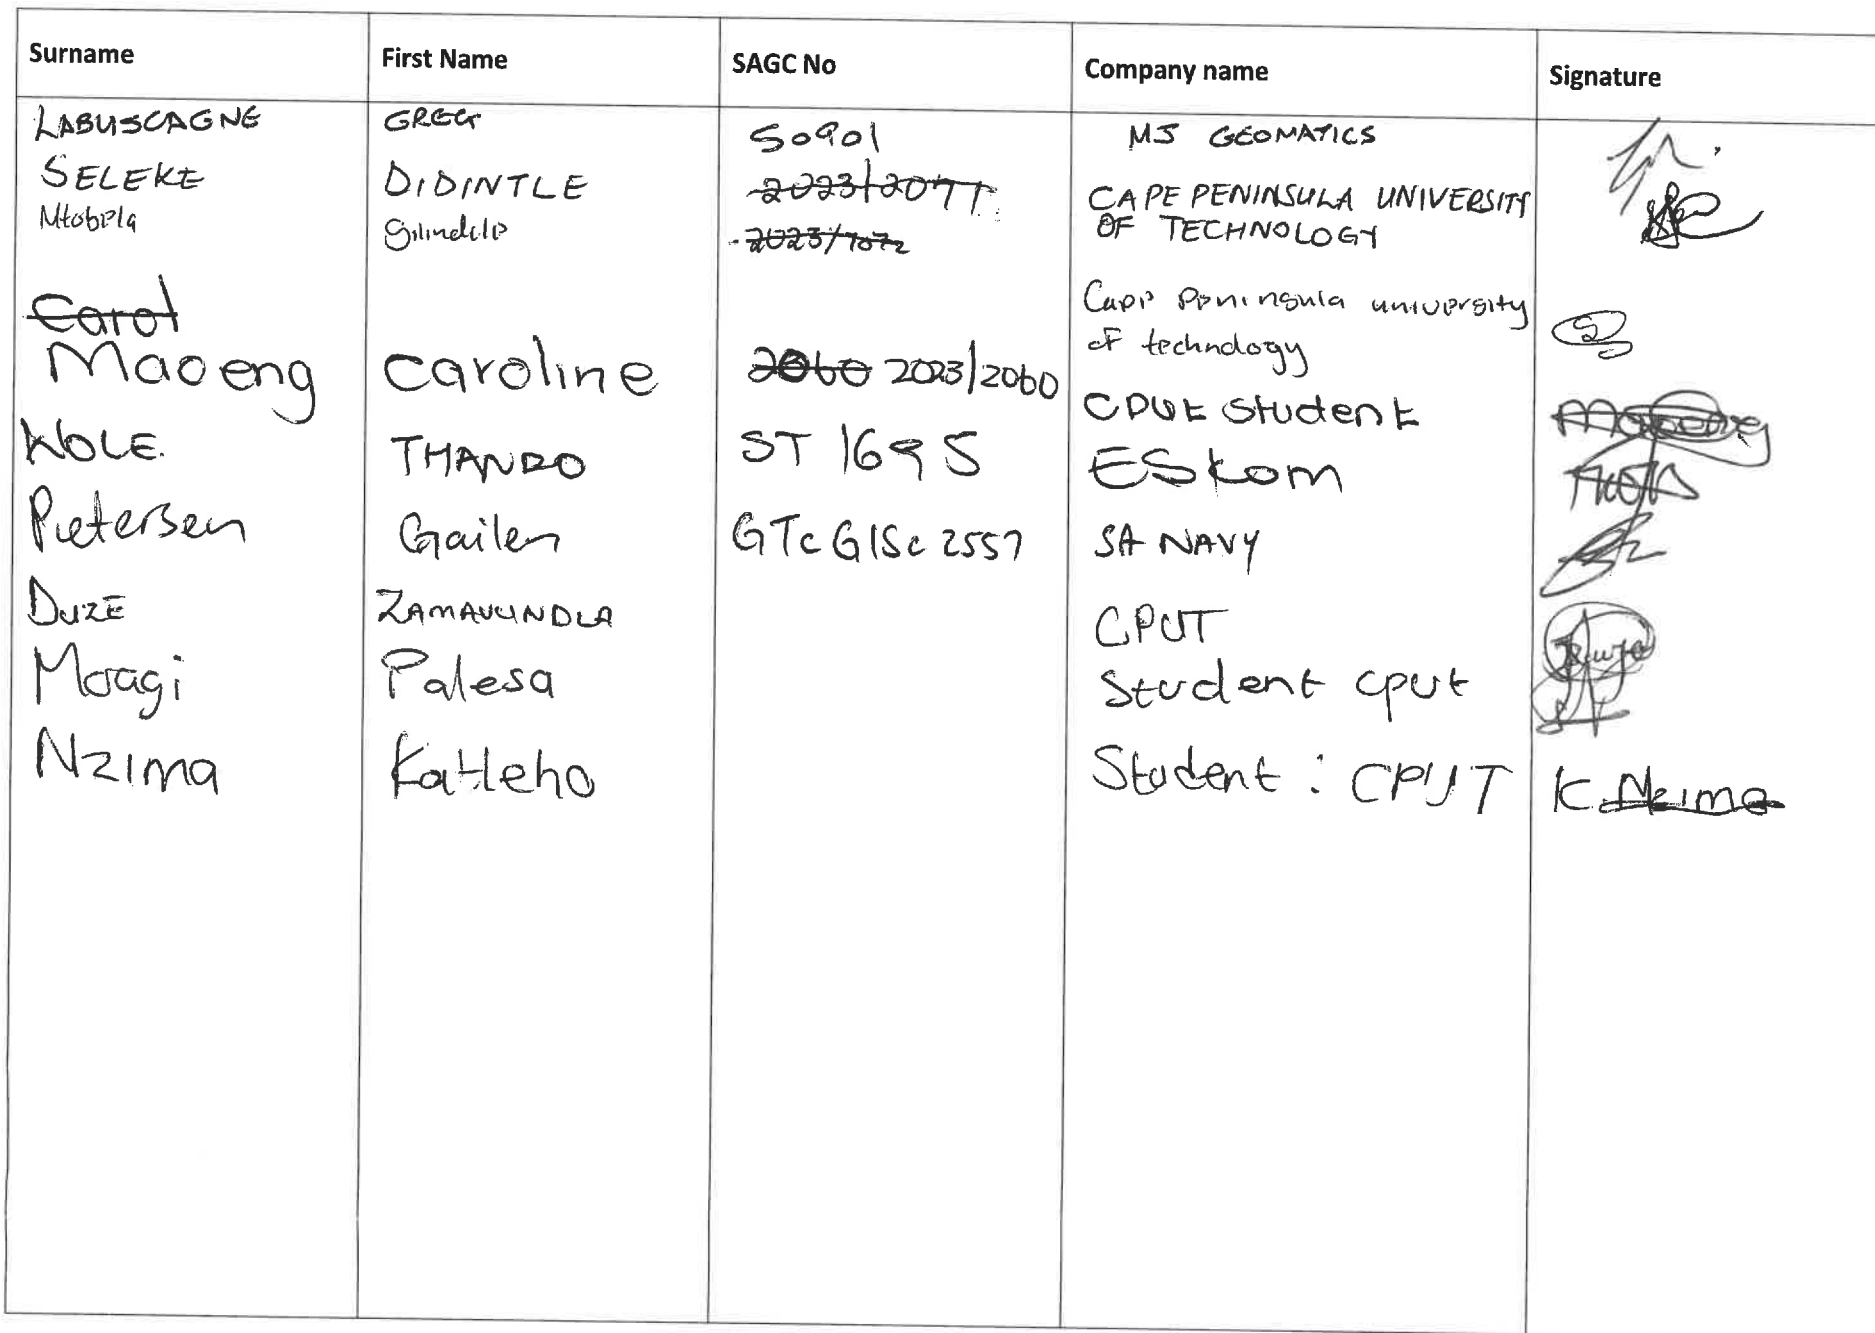 Surname First Name SAGC No Company name Signature
LABUSCAGNE GREG S0901 MJ GEOMATICS
SELEKE DIDINTLE 2023/2077 CAPE PENINSULA UNIVERSITY
OF TECHNOLOGY
Mtobela Silindile 2023/1072
Cape Peninsula university
of technology
Carol
Maoeng Caroline 2060 2023/2060 CPUt Student
KOLE. THANDO ST 1695 ESkom
Pietersen Gailen GTc GISc 2557 SA NAVY
DUZE ZAMAVUNDLA CPUT
Moagi Palesa Student cput
Nzima Katleho Student : CPUT K.Nzima